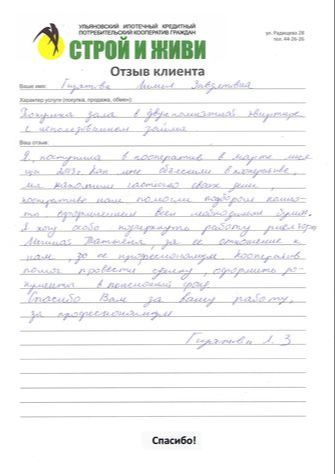 УЛЬЯНОВСКИЙ ИПОТЕЧНЫЙ КРЕДИТНЫЙ
ПОТРЕБИТЕЛЬСКИЙ КООПЕРАТИВ ГРАЖДАН
СТРОЙ И ЖИВИ
ул. Радищева 28
тел. 44-26-26
Отзыв клиента
Ваше имя: Гиратова Лилия
Характер услуги (покупка, продажа, обмен):
Покупка зала в двухкомнатной квартире
с использованием займа
Ваш отзыв:
Я, поступила в кооператив в марте
2013г. Как мне объяснили в кооперативе,
мы накопили частью своих денег,
кооператив нам, помогли
оформлением всех необходимых бумаг.
Я хочу особо подчеркнуть работу риелтора
Татьяны, за ее отношение к
нам, за ее профессионализм. Кооператив
помог провести сделку, оформить до-
кументы в пенсионный фонд
Спасибо Вам за вашу работу,
за профессионализм
Гиратова Л. З
Спасибо!